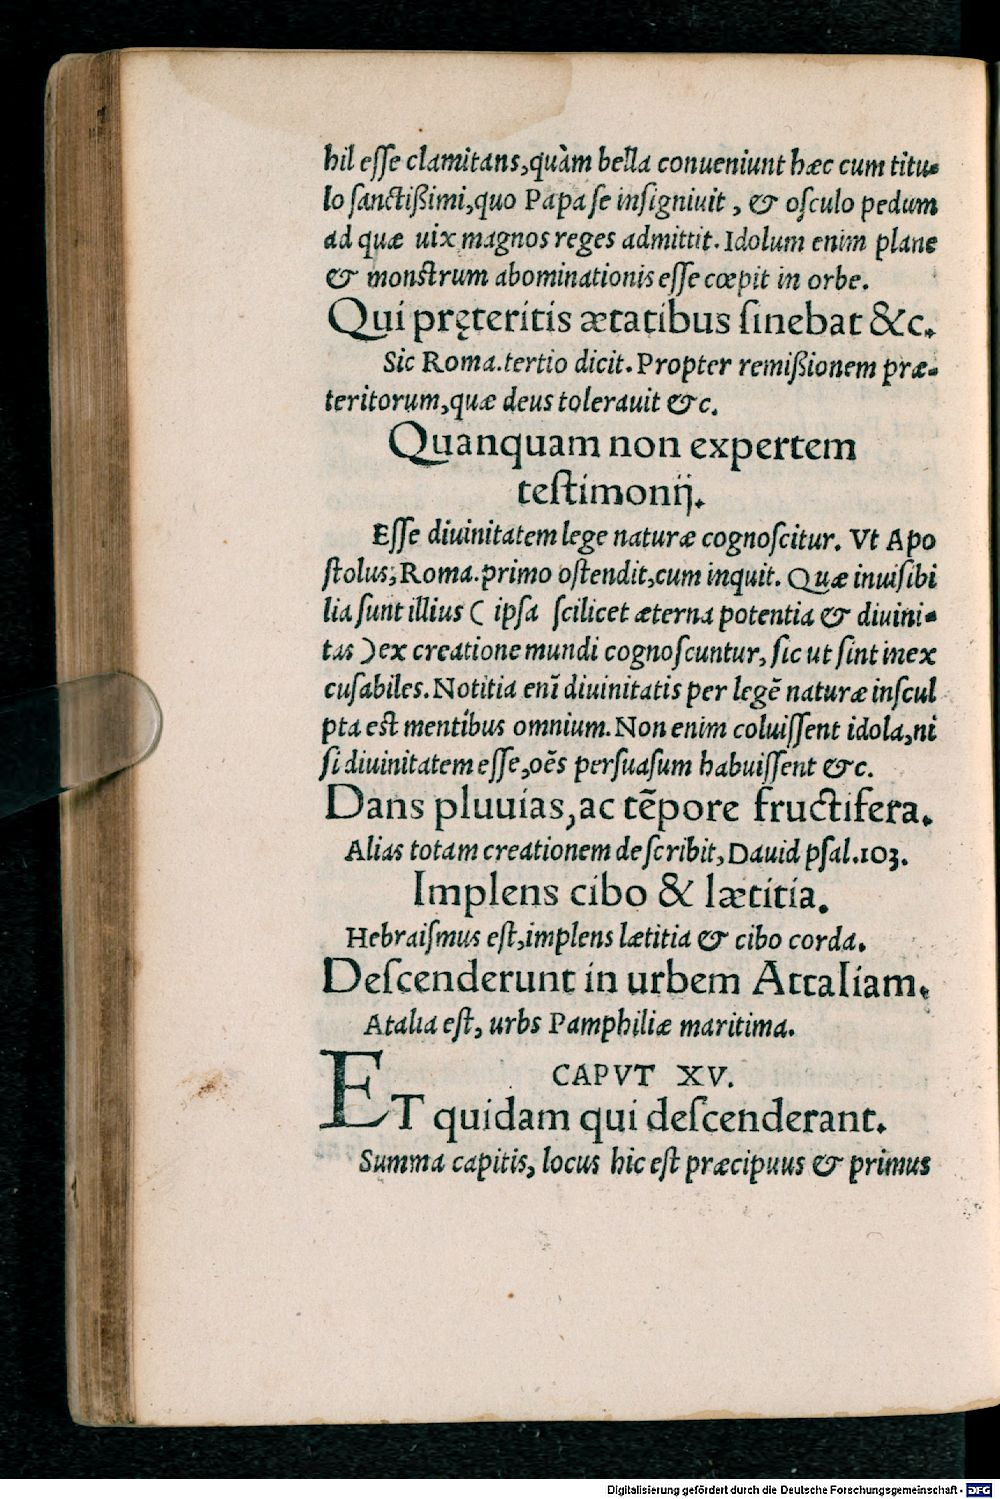 hil eſſe clamitans,quàm bella conueniunt hæc cum titu-
lo ſanctißimi,quo Papa ſe inſigniuit , & oſculo pedum
ad quæ uix magnos reges admittit. Idolum enim plane
& monſtrum abominationis eſſe cœpit in orbe.
Qui pręteritis ætatibus ſinebat &c.
Sic Roma.tertio dicit. Propter remißionem præ-
teritorum,quæ deus tolerauit &c.
Quanquam non expertem
teſtimonij.
Eſſe diuinitatem lege naturæ cognoſcitur. Vt Apo
ſtolus, Roma.primo oſtendit,cum inquit. Quæ inuiſibi
lia ſunt illius ( ipſa ſcilicet æterna potentia & diuini-
tas ) ex creatione mundi cognoſcuntur, ſic ut ſint inex
cuſabiles. Notitia eni͂ diuinitatis per lege͂ naturæ inſcul
pta eſt mentibus omnium. Non enim coluiſſent idola,ni
ſi diuinitatem eſſe,oe͂s perſuaſum habuiſſent &c.
Dans pluuias,ac te͂pore fructifera.
Alias totam creationem deſcribit, Dauid pſal.103.
Implens cibo & lætitia.
Hebraiſmus eſt,implens lætitia & cibo corda.
Deſcenderunt in urbem Attaliam.
Atalia eſt, urbs Pamphiliæ maritima.
CAPVT XV.
ET quidam qui deſcenderant.
Summa capitis, locus hic eſt præcipuus & primus
Digitalisierung gefördert durch die Deutsche Forschungsgemeinschaft - DFG